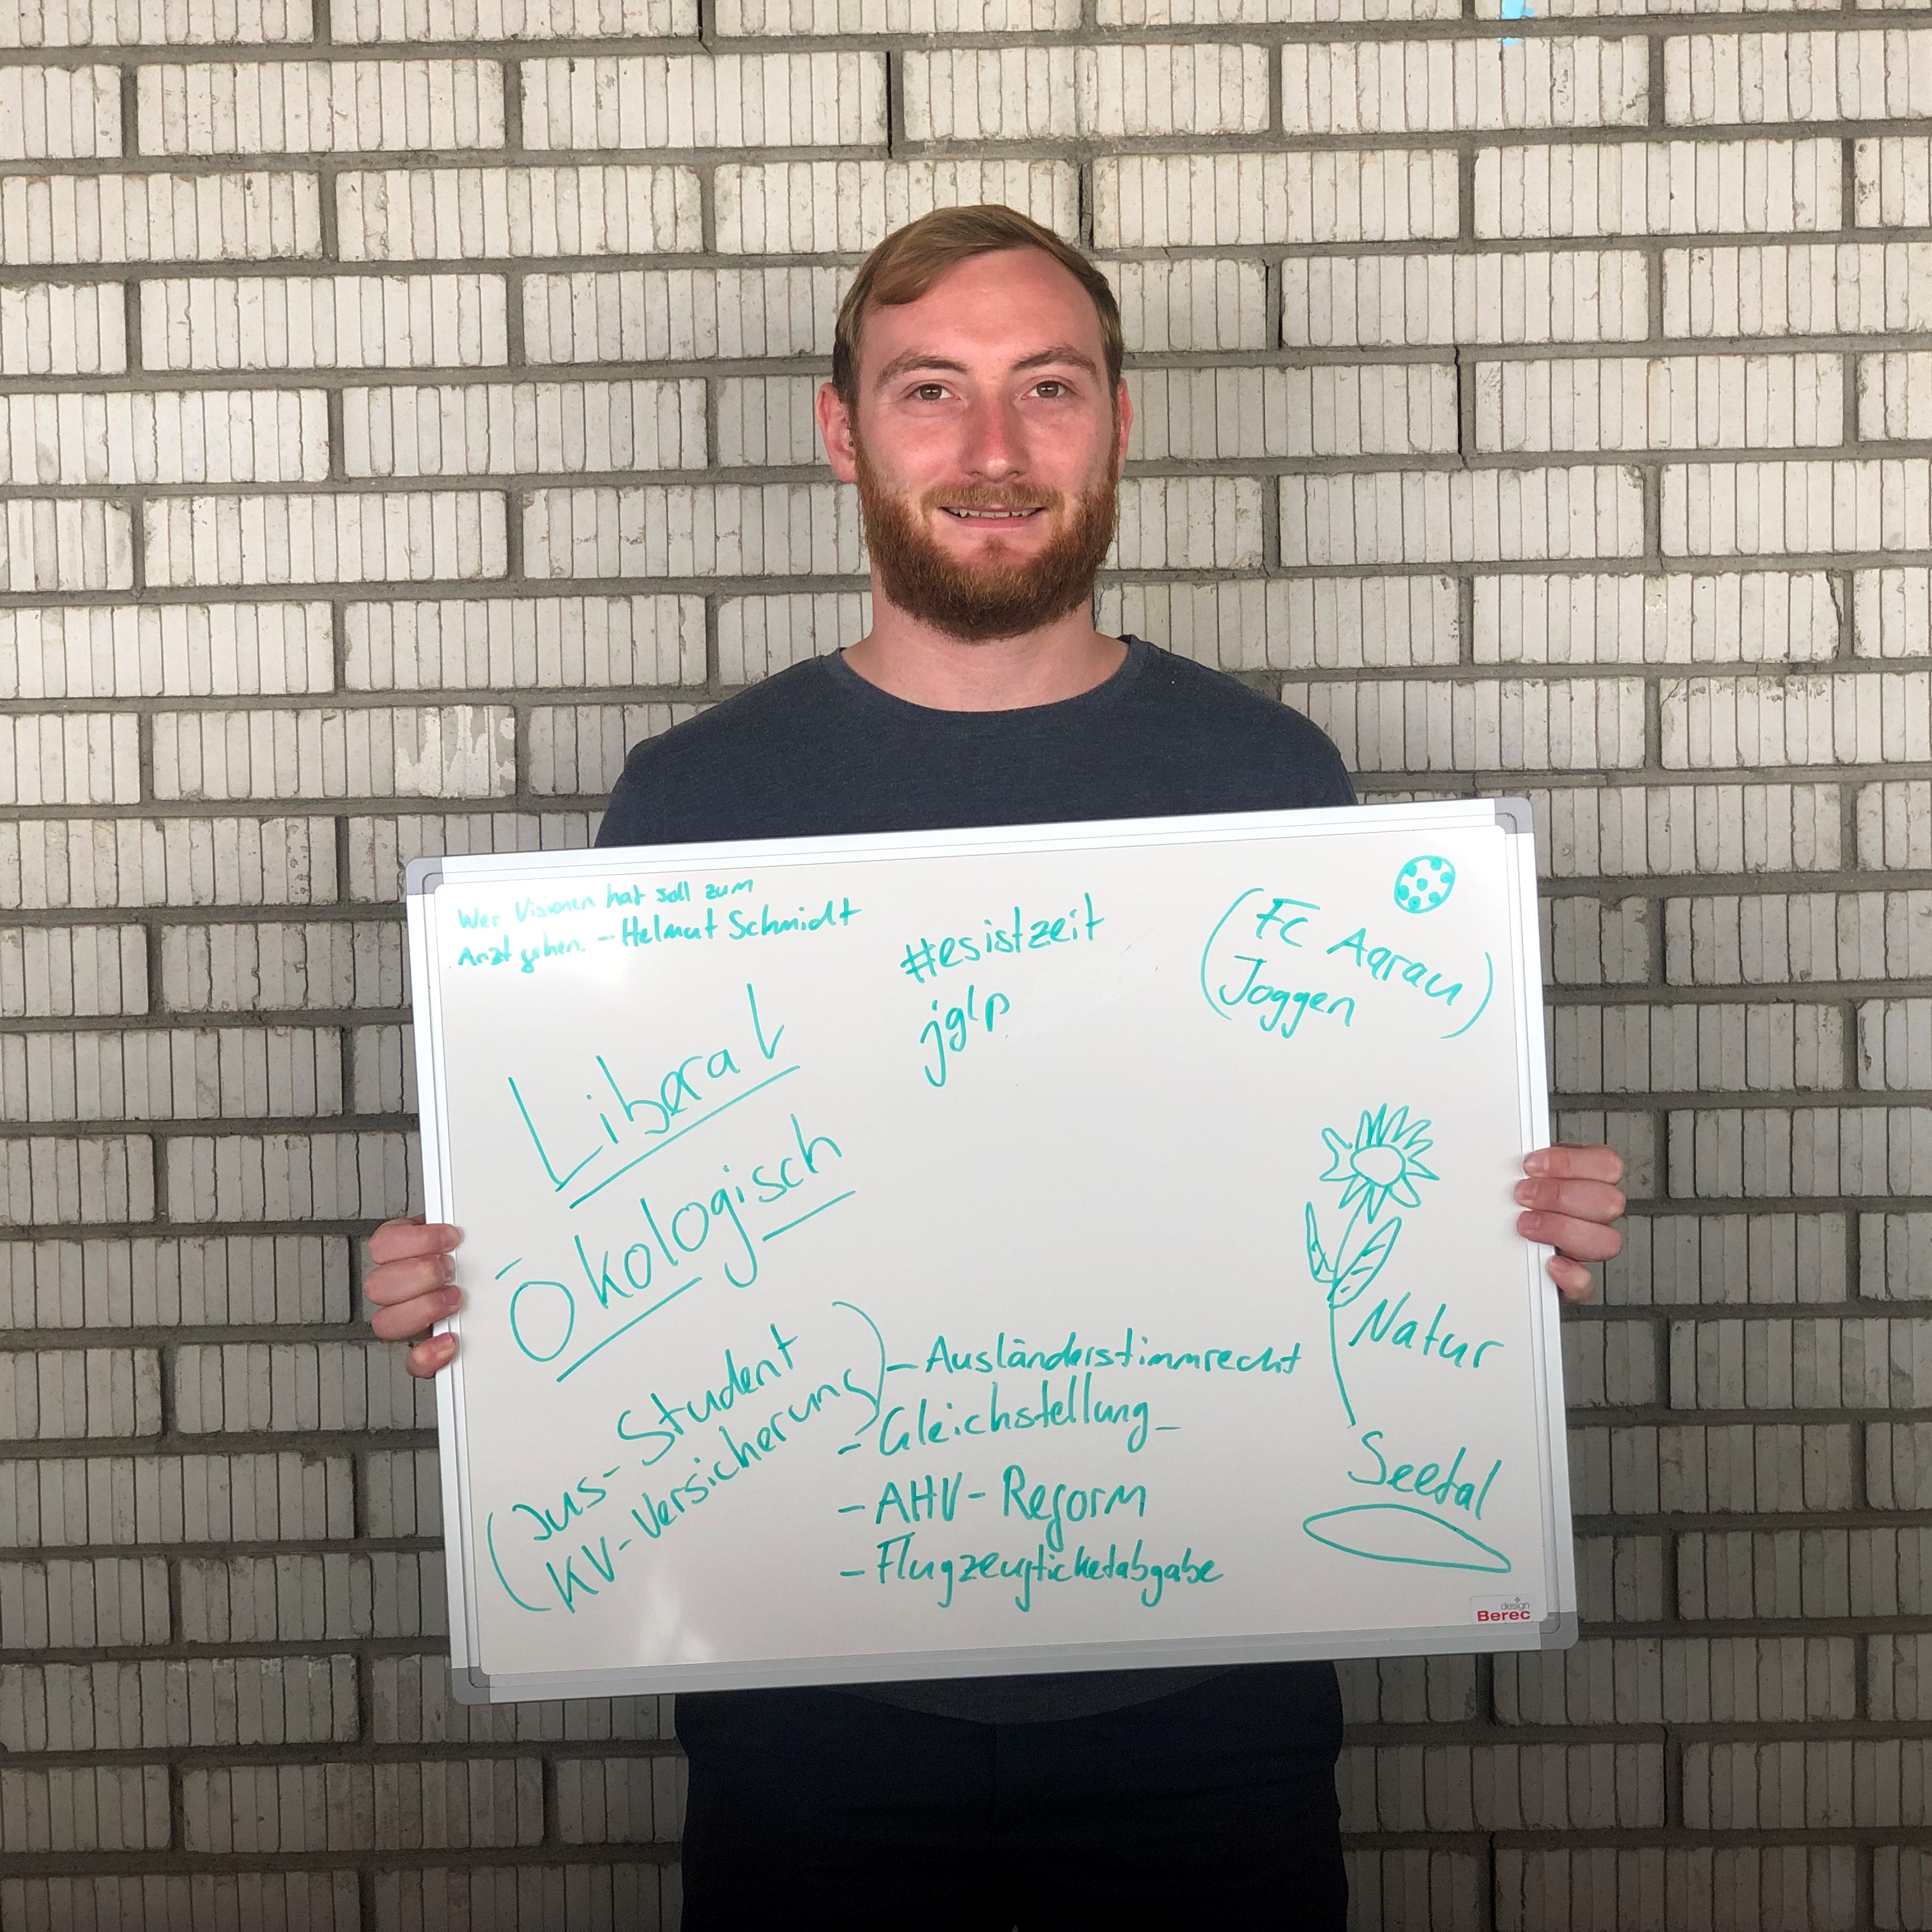 Wer Visionen hat soll zum
Arzt gehen. - Helmut Schmidt
#esistzeit
jglp
(FC Aarau
Joggen)
Liberal
Ökologisch
(Jus-Student
KV-Versicherung)
- Ausländerstimmrecht
- Gleichstellung
- AHV-Reform
- Flugzeugticketabgabe
Natur
Seetal
design
Berec